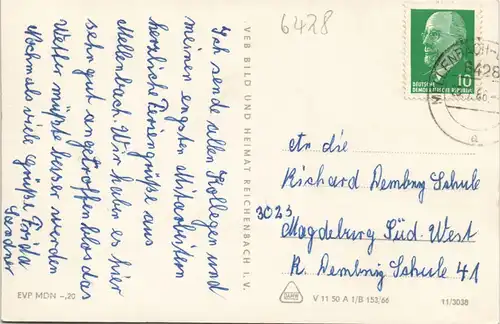 6428
Ich sende allen Kollegen und
meinen engsten Mitarbeitern
herzliche Feriengrüße aus
Mellenbach. Wir haben es hier
sehr gut angetroffen blos das
Wetter müßte besser werden
Nochmals viele Grüße Frida
VEB BILD UND HEIMAT REICHENBACH I. V.
DEUTSCHE
DEMOKRATISCHE REPUBLIK
10
6428
a
An die
Richard Dembny Schule
3023
Magdeburg Süd-West
R. Dembny Schule 41
EVP MDN -,20
V 11 50 A 1/B 153/66
11/3038